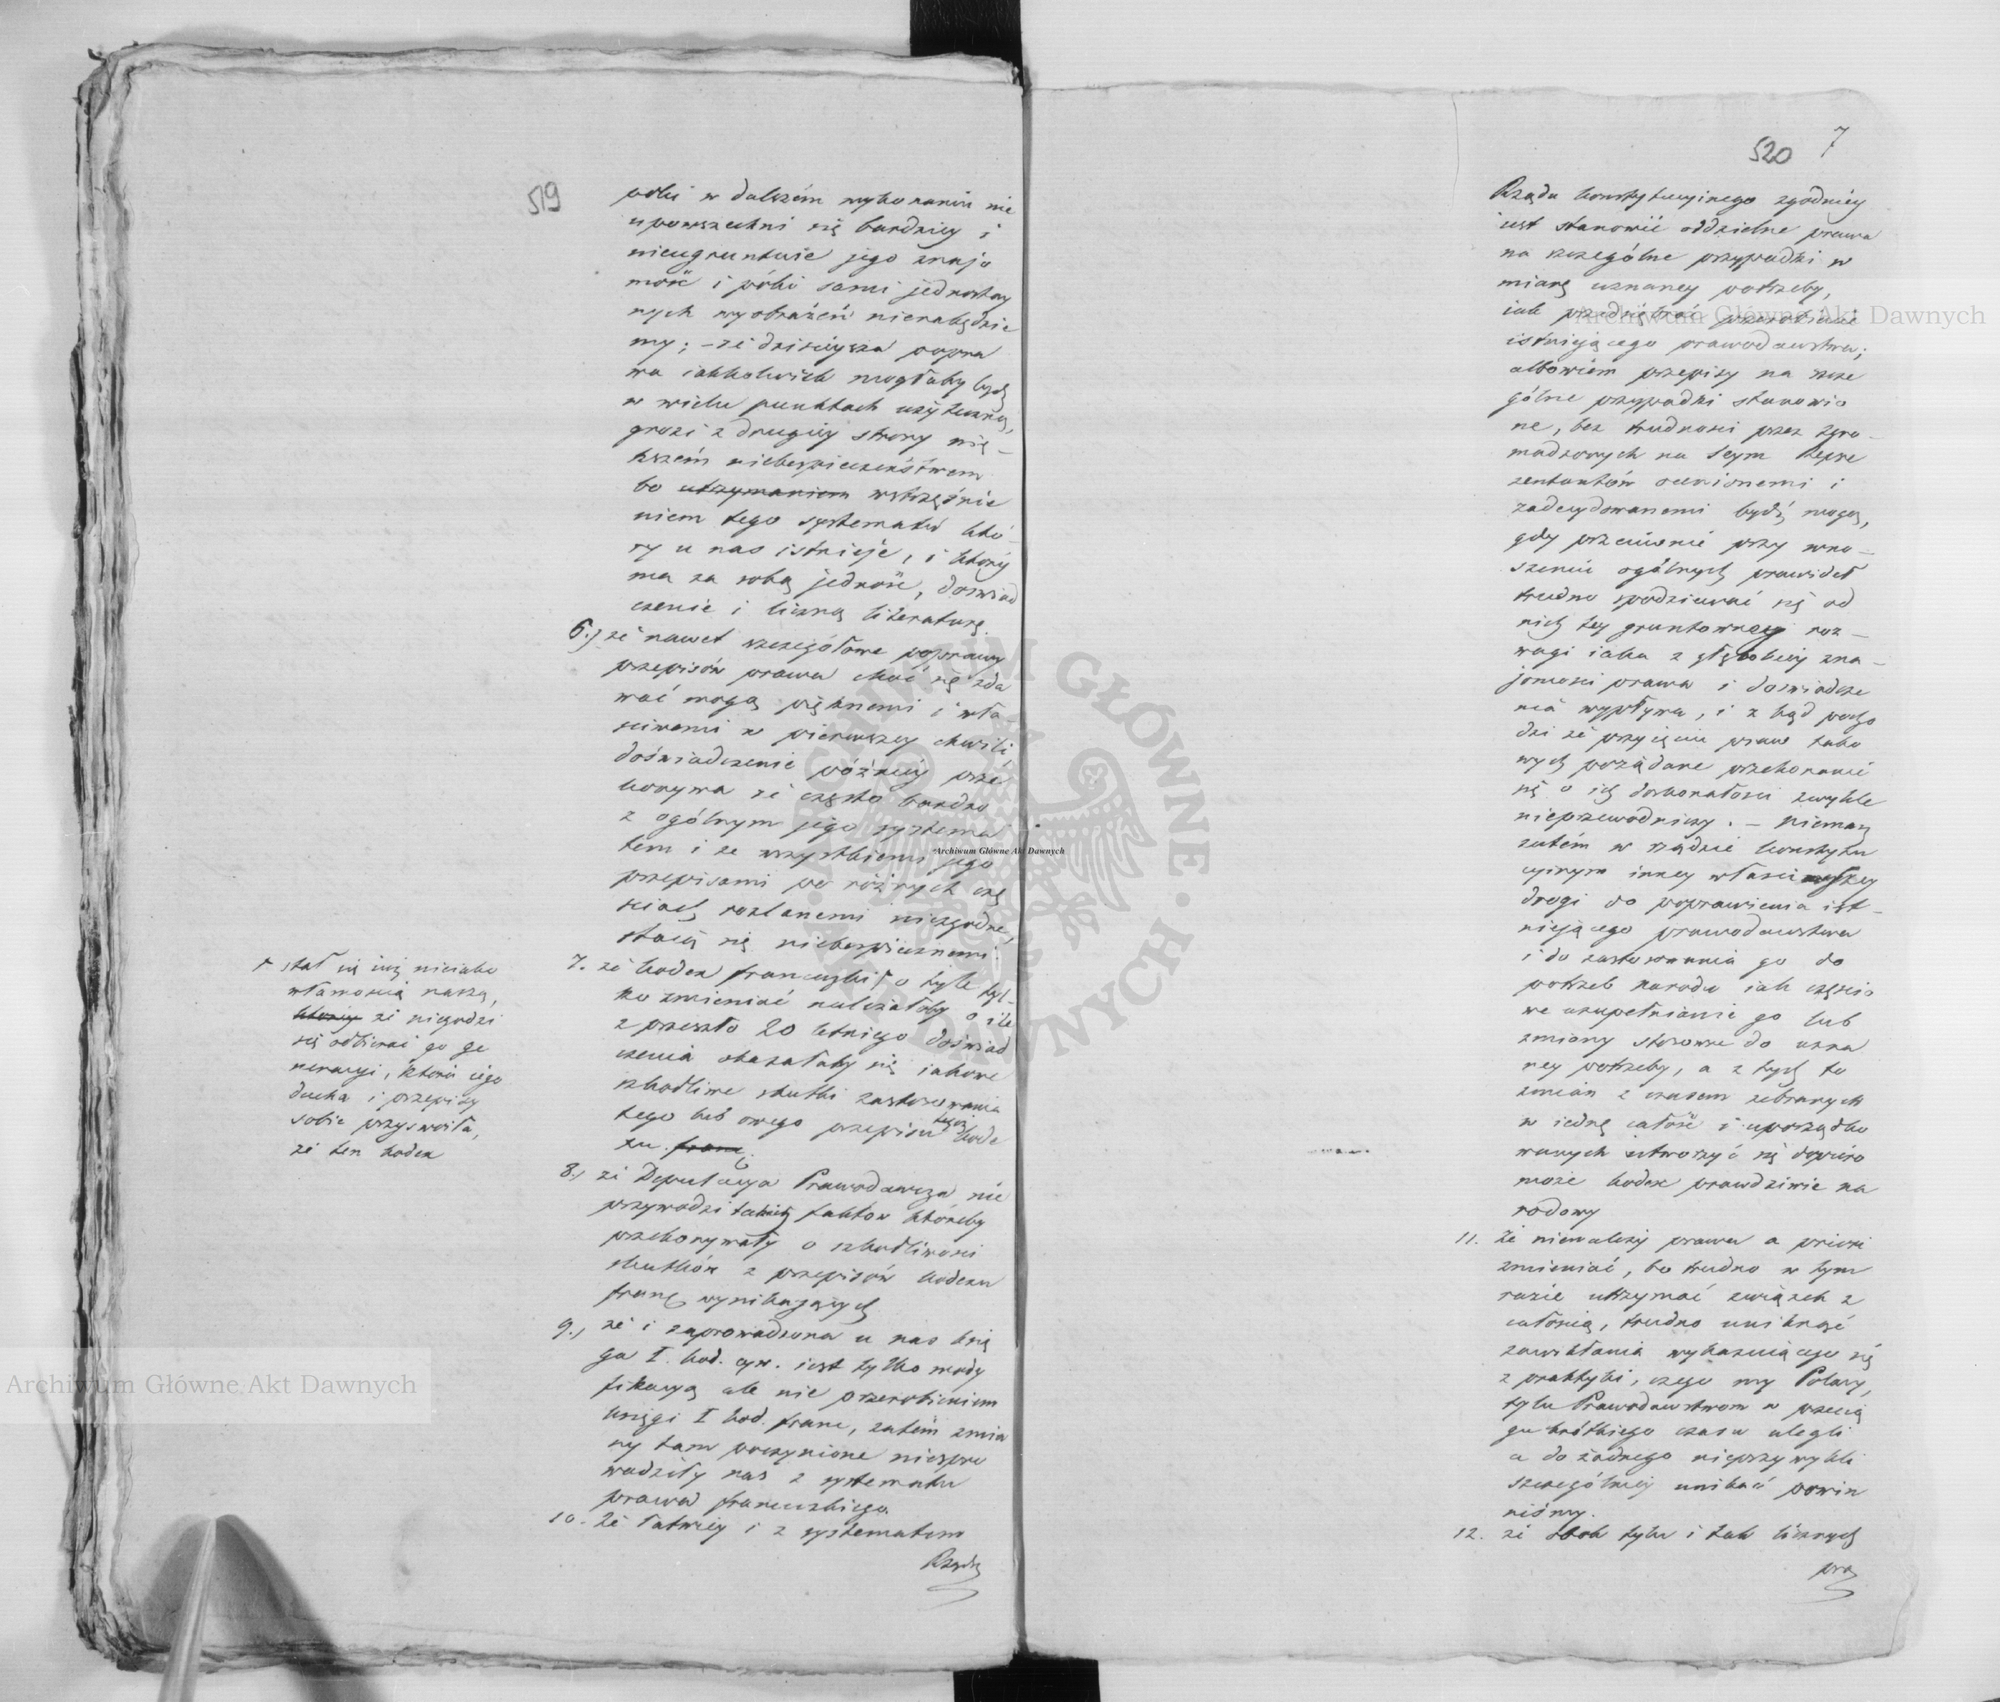 519
póki w dalszém wykonaniu nie
upowszechni się bardziey i
nieugruntuie jego znajo
mość i póki sami jednostay
nych wyobrażeń nienabędzie
my; – że dzisieysza popra
wa iakkolwiek mogłaby bydź
w wielu punktach użyteczną,
grozi z drugiéy strony wię–
kszém niebezpieczeństwem
bo utrzymaniem wstrzęśnie
niem tego systematu któ–
ry u nas istnieje, i który
ma za sobą jedność, doświad
czenie i liczną literaturę.
6.) że nawet szczegółowe poprawy
przepisów prawa choć się zda
wać mogą pięknemi i wła–
sciwemi w pierwszey chwili
doświadczenie późniéy prze
konywa że często bardzo
z ogólnym jego systema
tem i ze wszystkiemi jego
przepisami po różnych czę
sciach rozlanemi niezgodne,
staią się niebezpiecznemi.
7. że kodex francuzki o tyle tyl–
ko zmieniać należałoby o ile
z przeszło 20 letniego doświad
czenia okazałyby się iakowe
szkodliwe skutki zastosowania
tego lub owego przepisu tegoż kode
xu. franc
stał się iuż nieiako
własnością naszą,
który że niegodzi
się odbierać go ge
neracyi, która iego
ducha i przepisy
sobie przyswoiła,
że ten kodex
8.) że Deputacya Prawodawcza nie
przywodzi takich faktów któreby
przekonywały o szkodliwości
skutków z przepisów kodexu
franc wynikających
9.) że i zaprowadzona u nas księ
ga I. kod. cyw. iest tylko mody
fikacyą ale nie przerobieniem
księgi I kod. franc, zatém zmia
ny tam poczynione niespro
wadziły nas z systematu
prawa francuzkiego.
10. Że łatwiéy i z systematem
Rządu
520 7
Rządu konstytucyinego zgodniéy
iest stanowić oddzielne prawa
na szczególne przypadki w
miarę uznaney potrzeby,
iak przedsiębrać przerobienie
istniejącego prawodawstwa;
albowiem przepisy na szcze
gólne przypadki stanowio
ne, bez trudności przez zgro–
madzonych na Seym Repre
zentantów ocenionemi i
zadecydowanemi bydź mogą,
gdy przeciwnie przy wno–
szeniu ogólnych prawideł
trudno spodziewać się od
nich tey gruntowney roz–
wagi iaka z głębokiéy zna–
jomości prawa i doświadcze
nia wypływa, i z tąd pocho
dzi że przyjęciu praw tako
wych pożądane przekonanie
się o ich doskonałości zwykle
nieprzewodniczy. – Niemasz
zatém w rządzie konstytu
cyinym inney właściwszey
drogi do poprawienia ist–
niejącego prawodawstwa
i do zastosowania go do
potrzeb narodu iak częścio
we uzupełnianie go lub
zmiany stosowne do uzna
ney potrzeby, a z tych to
zmian z czasem zebranych
w iedną całość i uporządko
wanych utworzyć się dopiéro
może kodex prawdziwie na
rodowy
11. Że nienależy prawa a priori
zmieniać, bo trudno w tym
razie utrzymać związek z
całością, trudno uniknąć
zawikłania wykazuiącego się
z praktyki, czego my Polacy,
tylu Prawodawstwom w przecią
gu krótkiego czasu ulegli
a do żadnego nieprzywykli
szczególniéy unikać powin
niśmy.
12. że obok tylu i tak licznych
pra
Archiwum Główne Akt Dawnych
Archiwum Główne Akt Dawnych
Archiwum Główne Akt Dawnych
ARCHIWUM GŁÓWNE AKT DAWNYCH